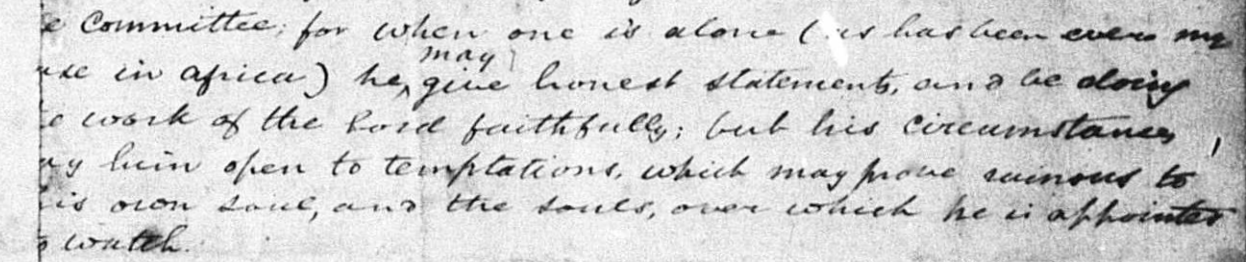 e Committee; for when one is alone (as has been ever my
ase in africa) he may give honest statements, and be doing
e work of the Lord faithfully; but his circumstances
ay him open to temptations, which may prove ruinous to
is own soul, and the souls, over which he is appointed
o watch.